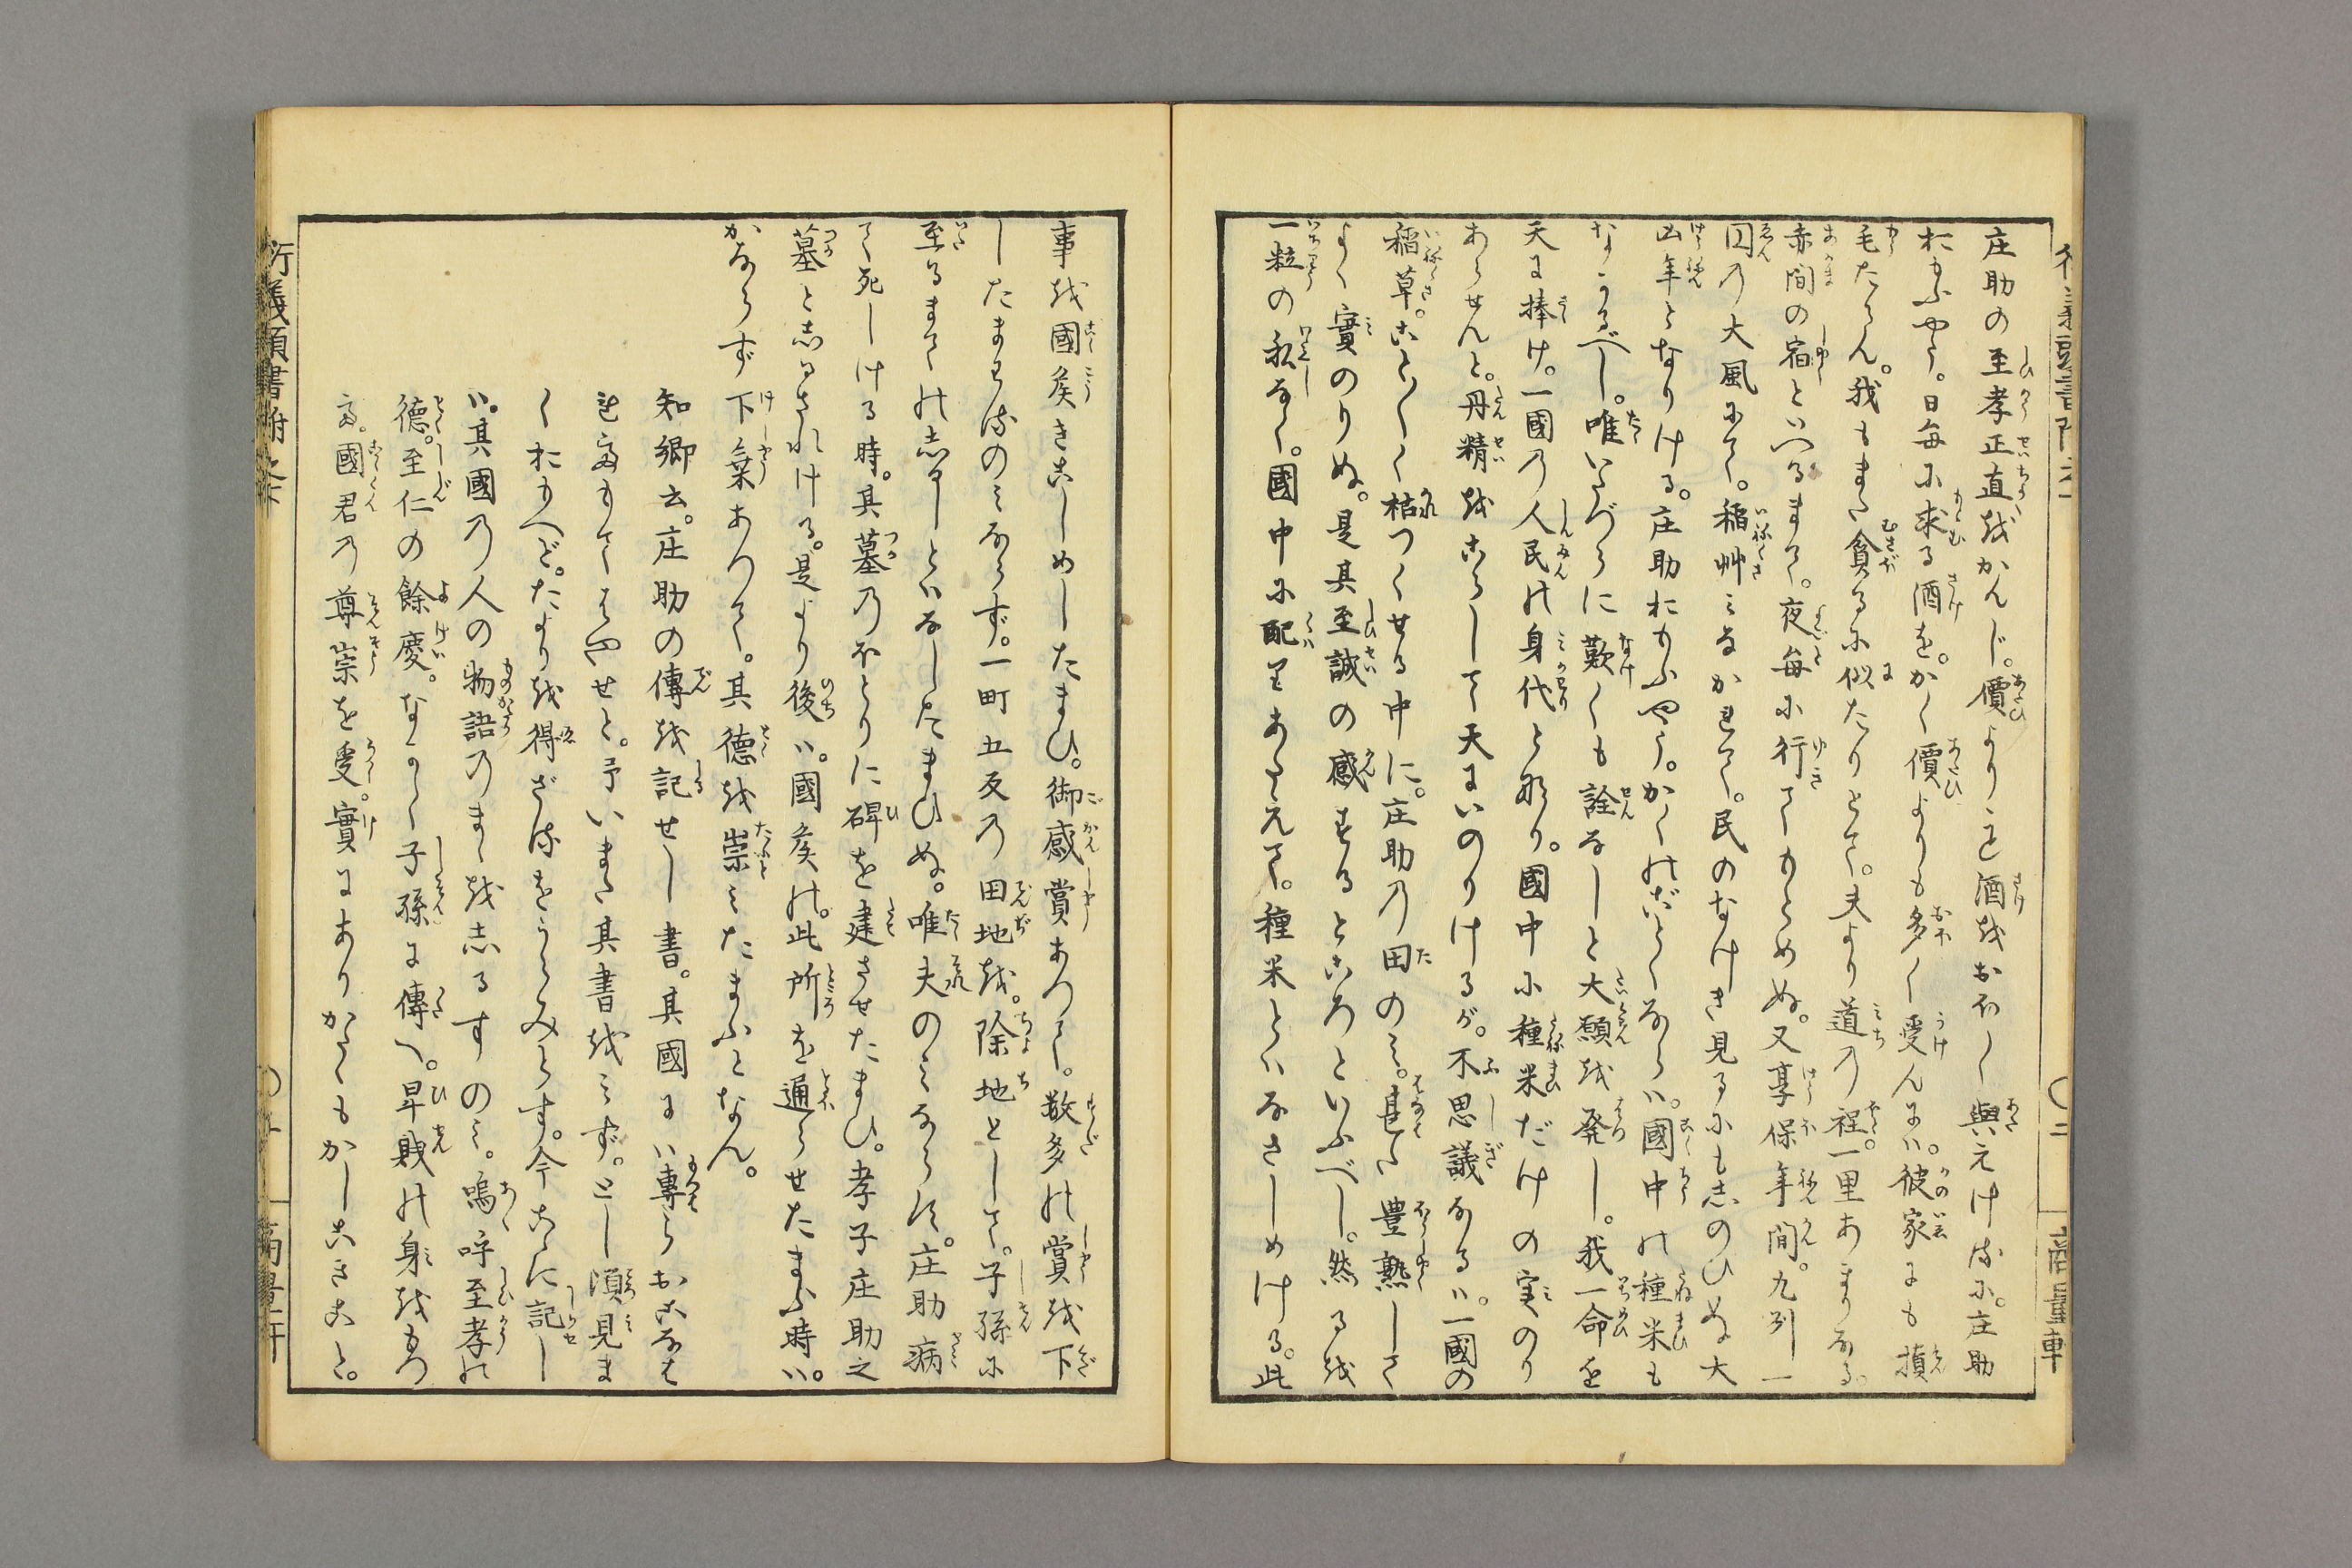 庄助の至孝正直をかんじ。價よりも酒をおほく與えけるに。庄助
おもふやう。日毎に求る酒を。かく價よりも多く受んには。彼家にも損
毛たらん。我もまた貪るに似たりとて。夫より道の程。一里あまりなる。
赤間の宿といへるまで。夜毎に行てもとめぬ。又享保年間。九州一
円の大風にて。稲艸みなかれて。民のなげき見るにも志のびぬ大
凶年となりける。庄助おもふやう。かくのごとくならば。國中の種米も
なかるべし。唯いたづらに歎くも詮なしと大願を発し。我一命を
天に捧け。一國の人民の身代となり。國中に種米だけの実のり
あらせんと。丹精をこらして天にいのりけるが。不思議なるは。一國の
稲草。ことごとく枯つくせる中に。庄助の田のみ。甚た豊熟して
よく實のりぬ。是其至誠の感ずるところといふべし。然るを
一粒の私なく。國中に配りあたえて。種米とはなさしめける。此
事を國矦きこしめしたまひ。御感賞あつて。数多の賞を下
したまはるのみならず。一町五反の田地を。除地として。子孫に
至るまでの志るしとはなしたまひぬ。唯夫のみならず。庄助病
て死しける時。其墓のほとりに碑を建させたまひ。孝子庄助之
墓と志るされける。是より後は。國矦の。此所を通らせたまふ時は。
かならず下乗あつて。其德を崇みたまふとなん。
知郷云。庄助の傳を記せし書。其國には專らおこなは
れ予いまた其書をみず。
くおもへど。たよりを得ざるをうらみとす。今こゝに記し
は。其國の人の物語のまゝを志るすのみ。嗚呼至孝の
德。至仁の餘慶。ながく子孫に傳へ。卑賤の身をもつ
て。國君の尊崇を受。實にありがたくもかしこきこと。